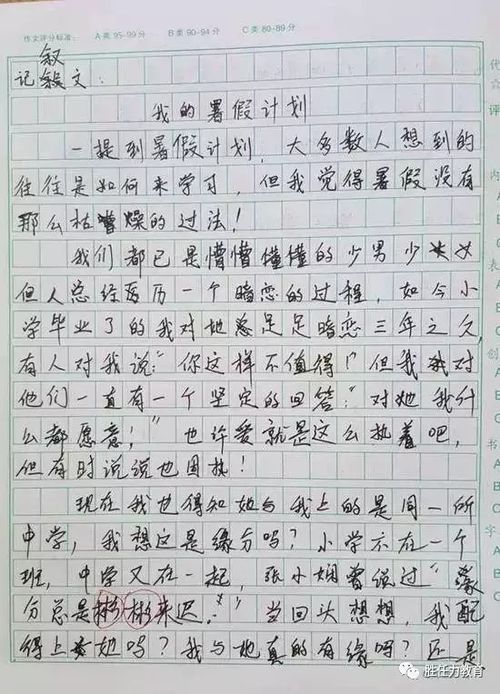 作文评分标准： A类95-99分 B类90-94分 C类80-89分
叙
记叙文：
我的暑假计划
一提到暑假计划，大多数人想到的
往往是如何来学习，但我觉得暑假没有
那么枯燥的过法！
我们都已是懵懵懂懂的少男少女
但人总经历一个暗恋的过程，如今小
学毕业了的我对她足足暗恋三年之久，
有人对我说："你这样不值得！"但我对
他们一直有一个坚定的回答："对她我什
么都愿意！"也许爱就是这么执着吧，
但有时说说也固执！
现在我也得知她与我上的是同一所
中学，我想这是缘分吗？小学不在一个
班，中学又在一起，张小娴曾说过"缘
分总是彬彬来迟。"当回头想想，我配
得上她吗？我与她真的有缘吗？还是
代
评
内
A
B
C
表
A
B
C
创
A
B
书
A
B
C
胜任力教育